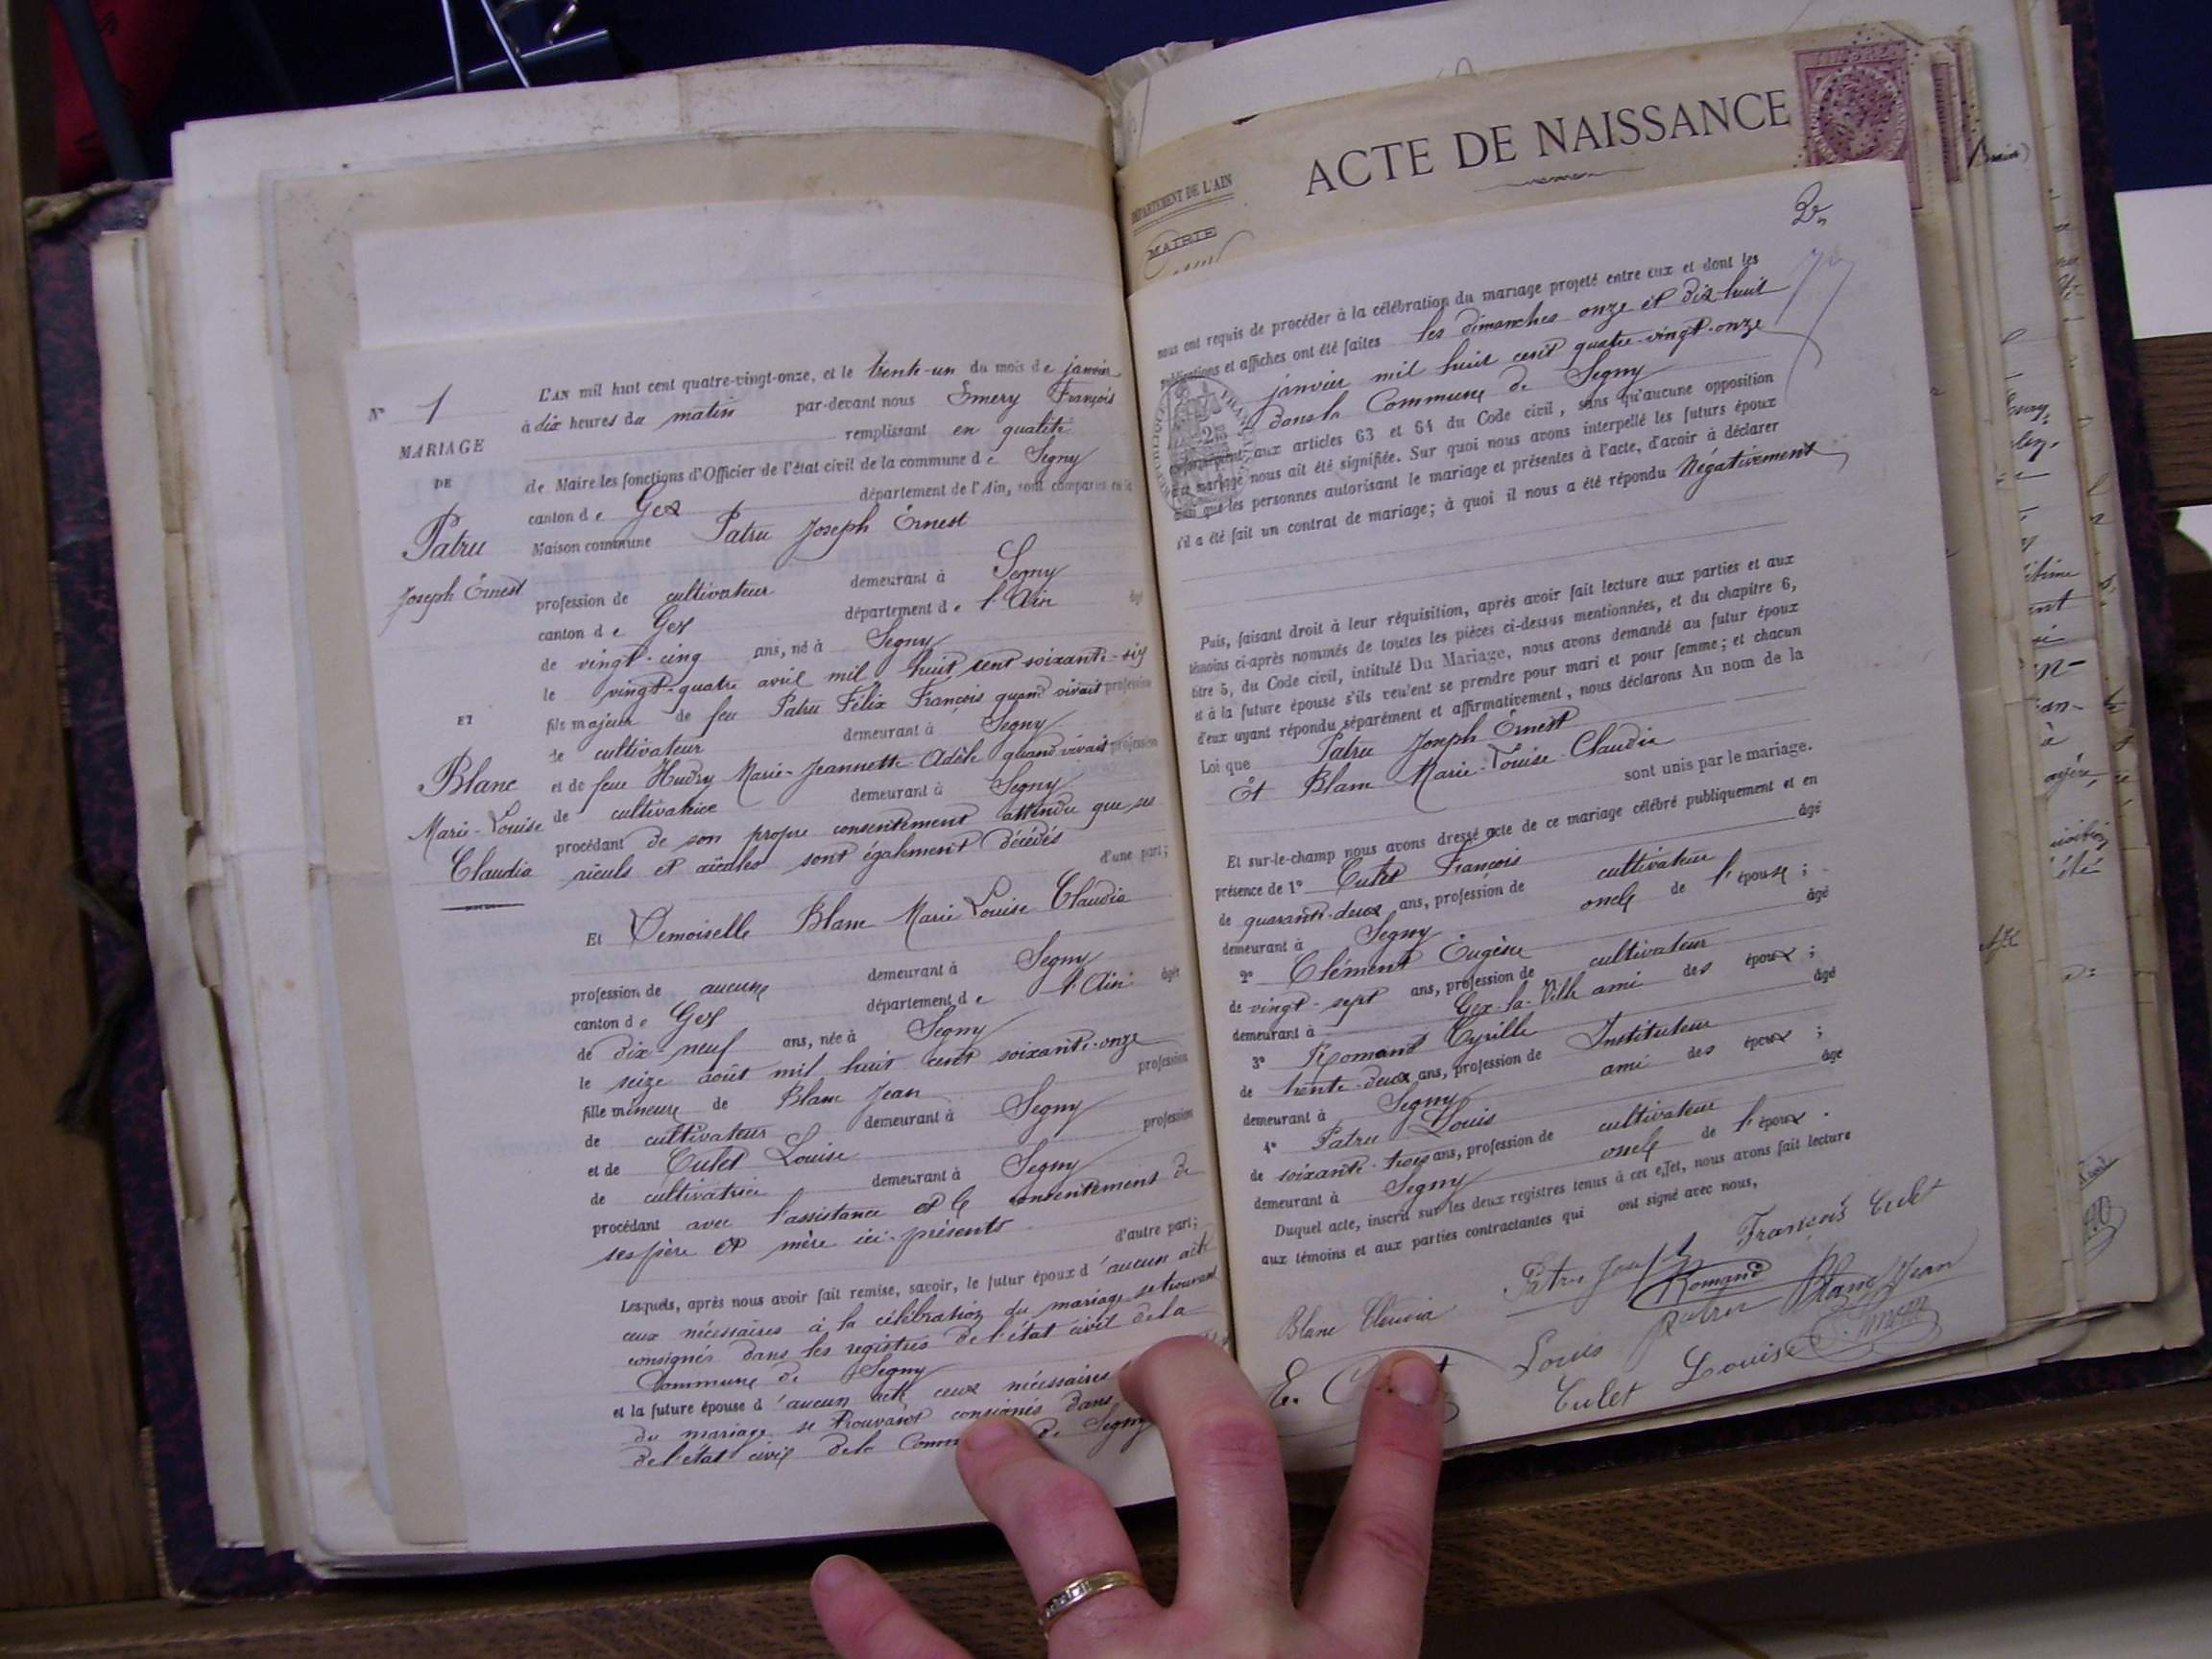 N° 1
MARIAGE
DE
Patru
Joseph Ernest
ET
Blanc
Marie-Louise
Claudia
L'AN mil huit cent quatre-vingt-onze, et le trente-un du mois de janvier
à dix heures du matin par-devant nous Emery François
remplissant en qualité
de Maire les fonctions d'Officier de l'état civil de la commune de Segny
canton de Gex département de l'Ain, sont comparus en la
Maison commune Patru Joseph Ernest
profession de cultivateur demeurant à Segny
canton de Gex département de l'Ain âgé
de vingt-cinq ans, né à Segny
le vingt-quatre avril mil huit cent soixante-six
fils majeur de feu Patru Félix François quand vivait profession
de cultivateur demeurant à Segny
et de feue Hudry Marie-Jeannette-Adèle quand vivait profession
de cultivatrice demeurant à Segny
procédant de son propre consentement attendu que ses
aïeuls et aïeules sont également décédés
d'une part;
Et Demoiselle Blanc Marie Louise Claudia
profession de aucune demeurant à Segny
canton de Gex département de l'Ain âgée
de dix-neuf ans, née à Segny
le seize août mil huit cent soixante-onze
fille mineure de Blanc Jean profession
de cultivateur demeurant à Segny
et de Culet Louise profession
de cultivatrice demeurant à Segny
procédant avec l'assistance et le consentement de
ses père et mère ici présents
d'autre part;
Lesquels, après nous avoir fait remise, savoir, le futur époux d'aucun acte
ceux nécessaires à la célébration du mariage se trouvant
consignés dans les registres de l'état civil de la
Commune de Segny
et la future épouse d'aucun acte ceux nécessaires
du mariage se trouvant consignés dans
de l'état civil de la Comm de Segny
DÉPARTEMENT DE L'AIN
MAIRIE
ACTE DE NAISSANCE
nous ont requis de procéder à la célébration du mariage projeté entre eux et dont les
publications et affiches ont été faites les dimanches onze et dix-huit
janvier mil huit cent quatre-vingt-onze
dans la Commune de Segny
aux articles 63 et 64 du Code civil, sans qu'aucune opposition
mariage nous ait été signifiée. Sur quoi nous avons interpellé les futurs époux
ainsi que les personnes autorisant le mariage et présentes à l'acte, d'avoir à déclarer
s'il a été fait un contrat de mariage; à quoi il nous a été répondu Négativement
Puis, faisant droit à leur réquisition, après avoir fait lecture aux parties et aux
témoins ci-après nommés de toutes les pièces ci-dessus mentionnées, et du chapitre 6,
titre 5, du Code civil, intitulé Du Mariage, nous avons demandé au futur époux
et à la future épouse s'ils veulent se prendre pour mari et pour femme; et chacun
d'eux ayant répondu séparément et affirmativement, nous déclarons Au nom de la
Loi que Patru Joseph Ernest
Et Blanc Marie-Louise-Claudia
sont unis par le mariage.
Et sur-le-champ nous avons dressé acte de ce mariage célébré publiquement et en
présence de 1° Culet François âgé
de quarante-deux ans, profession de cultivateur
demeurant à Segny oncle de l'épouse;
2° Clément Eugène âgé
de vingt-sept ans, profession de cultivateur
demeurant à Gex-la-Ville ami des époux;
3° Romand Cyrille âgé
de trente-deux ans, profession de Instituteur
demeurant à Segny ami des époux;
4° Patru Louis âgé
de soixante-trois ans, profession de cultivateur
demeurant à Segny oncle de l'époux.
Duquel acte, inscrit sur les deux registres tenus à cet effet, nous avons fait lecture
aux témoins et aux parties contractantes qui ont signé avec nous,
François Culet
Romand
Blanc Jean
Louis Patru
Culet Louise